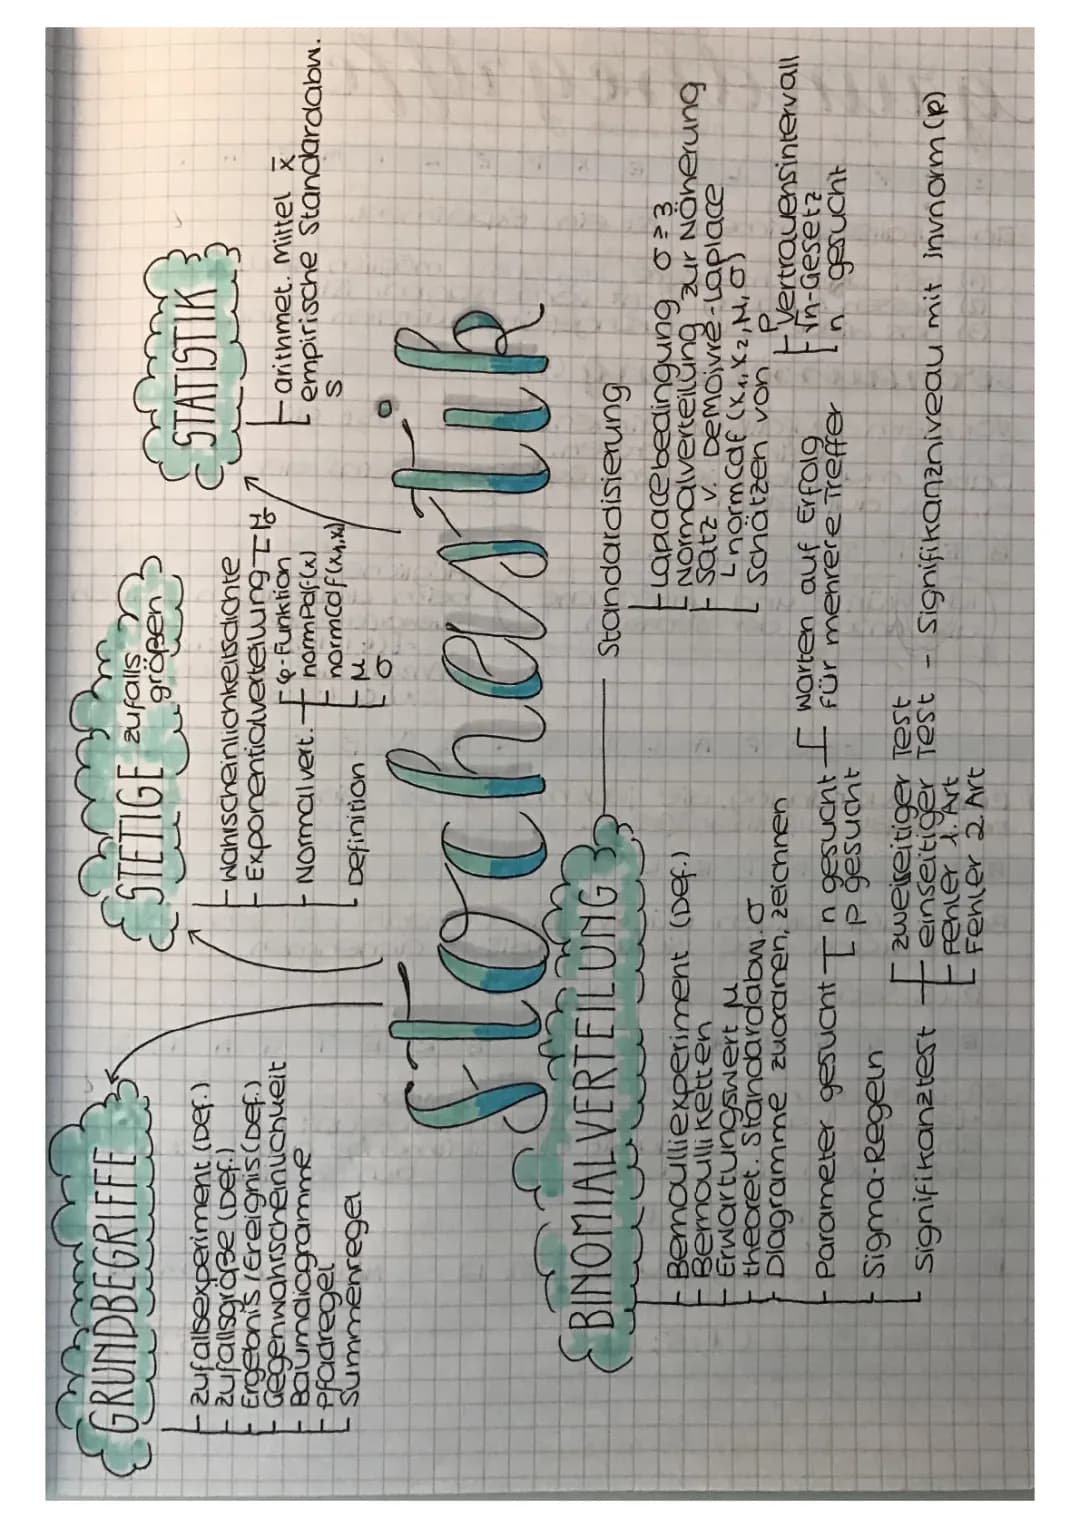 GRUNDBEGRIFFE
zufallsexperiment (Def.)
zufallsgröße (Def.)
Ergebnis / Ereignis (Def.)
Gegenwahrscheinlichkeit
Baumdiagramme
Pfadregel
Summenregel
STETIGE zufalls
größen
Wahrscheinlichkeitsdichte
Exponentialverteilung
μ
σ
Normalvert.
φ-Funktion
normPdf(x)
normcdf(x₁,x₂)
μ
σ
Definition
STATISTIK
arithmet. Mittel x̄
empirische Standardabw.
s
Stochastik
BINOMIALVERTEILUNG
Standardisierung
Bernoulliexperiment (Def.)
Bernoulli Ketten
Erwartungswert μ
theoret. Standardabw. σ
Diagramme zuordnen, zeichnen
Parameter gesucht
n gesucht
p gesucht
Warten auf Erfolg
für mehrere Treffer
Sigma-Regeln
Signifikanztest
zweiseitiger Test
einseitiger Test - Signifikanzniveau mit invnorm (p)
Fehler 1. Art
Fehler 2. Art
Lapacebedingung σ ≥ 3
Normalverteilung zur Näherung
Satz v. Demoivre-Laplace
normCdf (x₁, x₂, μ, σ)
Schätzen von p
Vertrauensintervall
√n-Gesetz
n gesucht